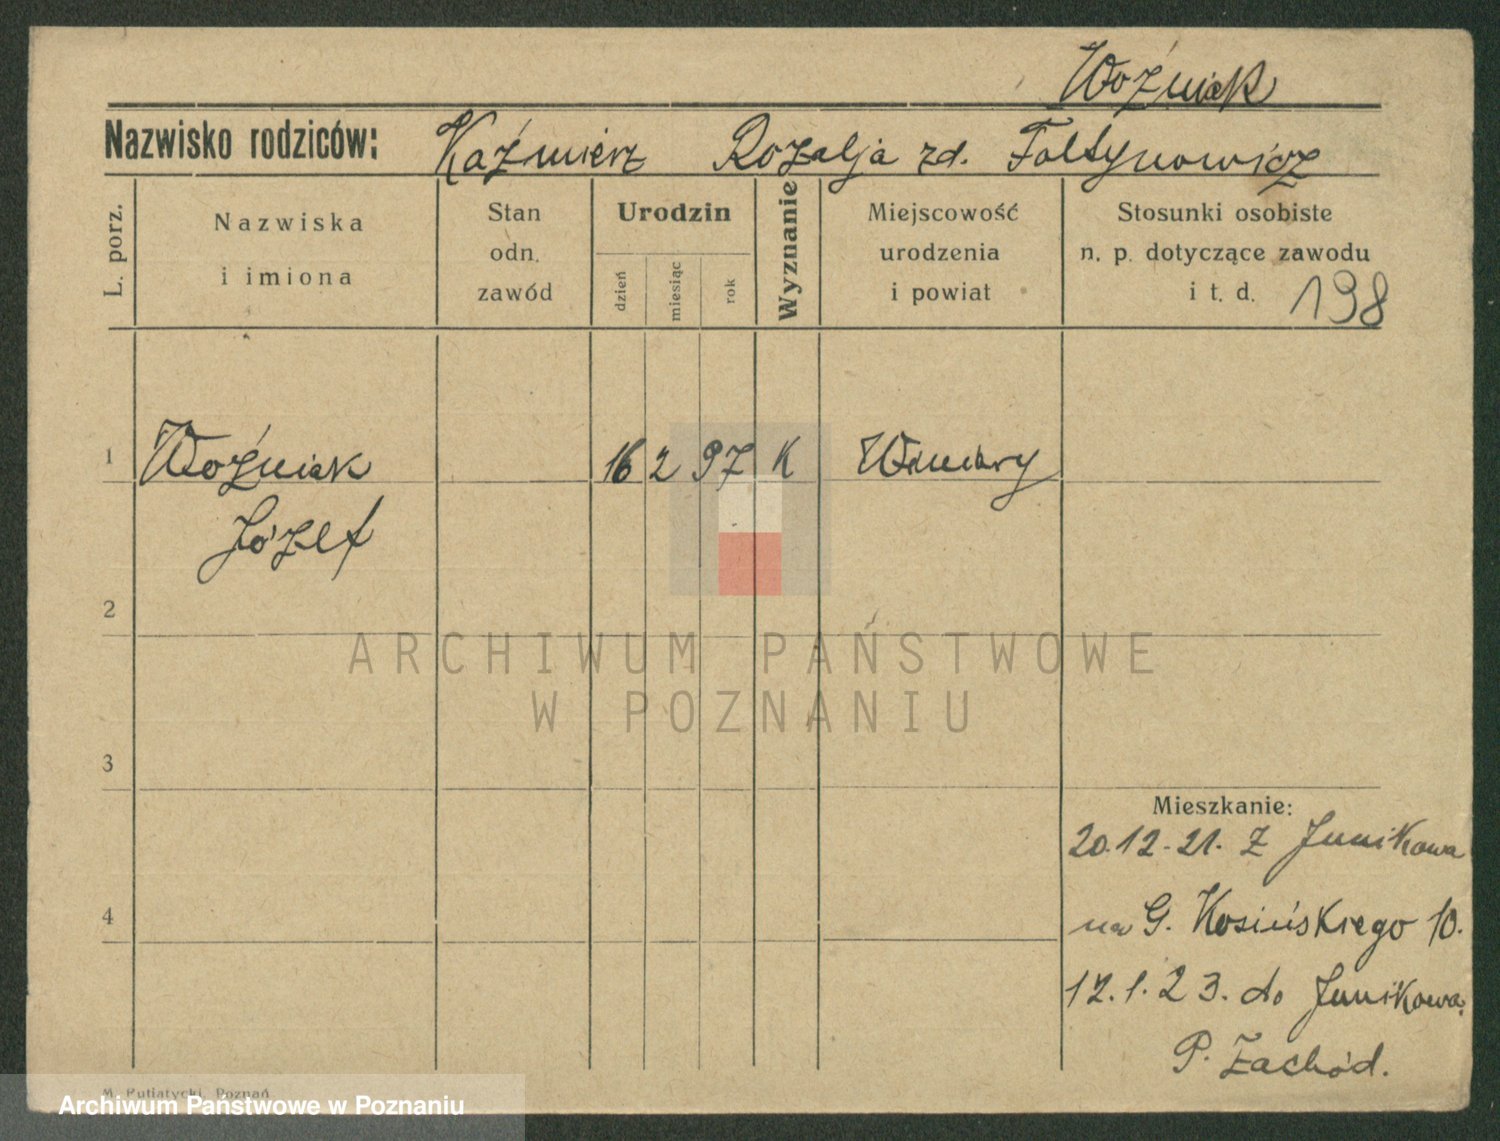 Woźniak
Nazwisko rodziców: Kaźmierz Rozalja zd. Foltynowicz
L. porz.
Nazwiska
i imiona
Stan
odn.
zawód
Urodzin
dzień
miesiąc
rok
Wyznanie
Miejscowość
urodzenia
i powiat
Stosunki osobiste
n. p. dotyczące zawodu
i t. d. 198
1 Woźniak 16 2 97 K Winiary
Józef
2
3
Mieszkanie:
20.12.21. z Junikowa
4
na G. Kosińskiego 10.
12.1.23. do Junikowa.
P. Zachód.
M. Putiatycki, Poznań
ARCHIWUM PAŃSTWOWE
W POZNANIU
Archiwum Państwowe w Poznaniu